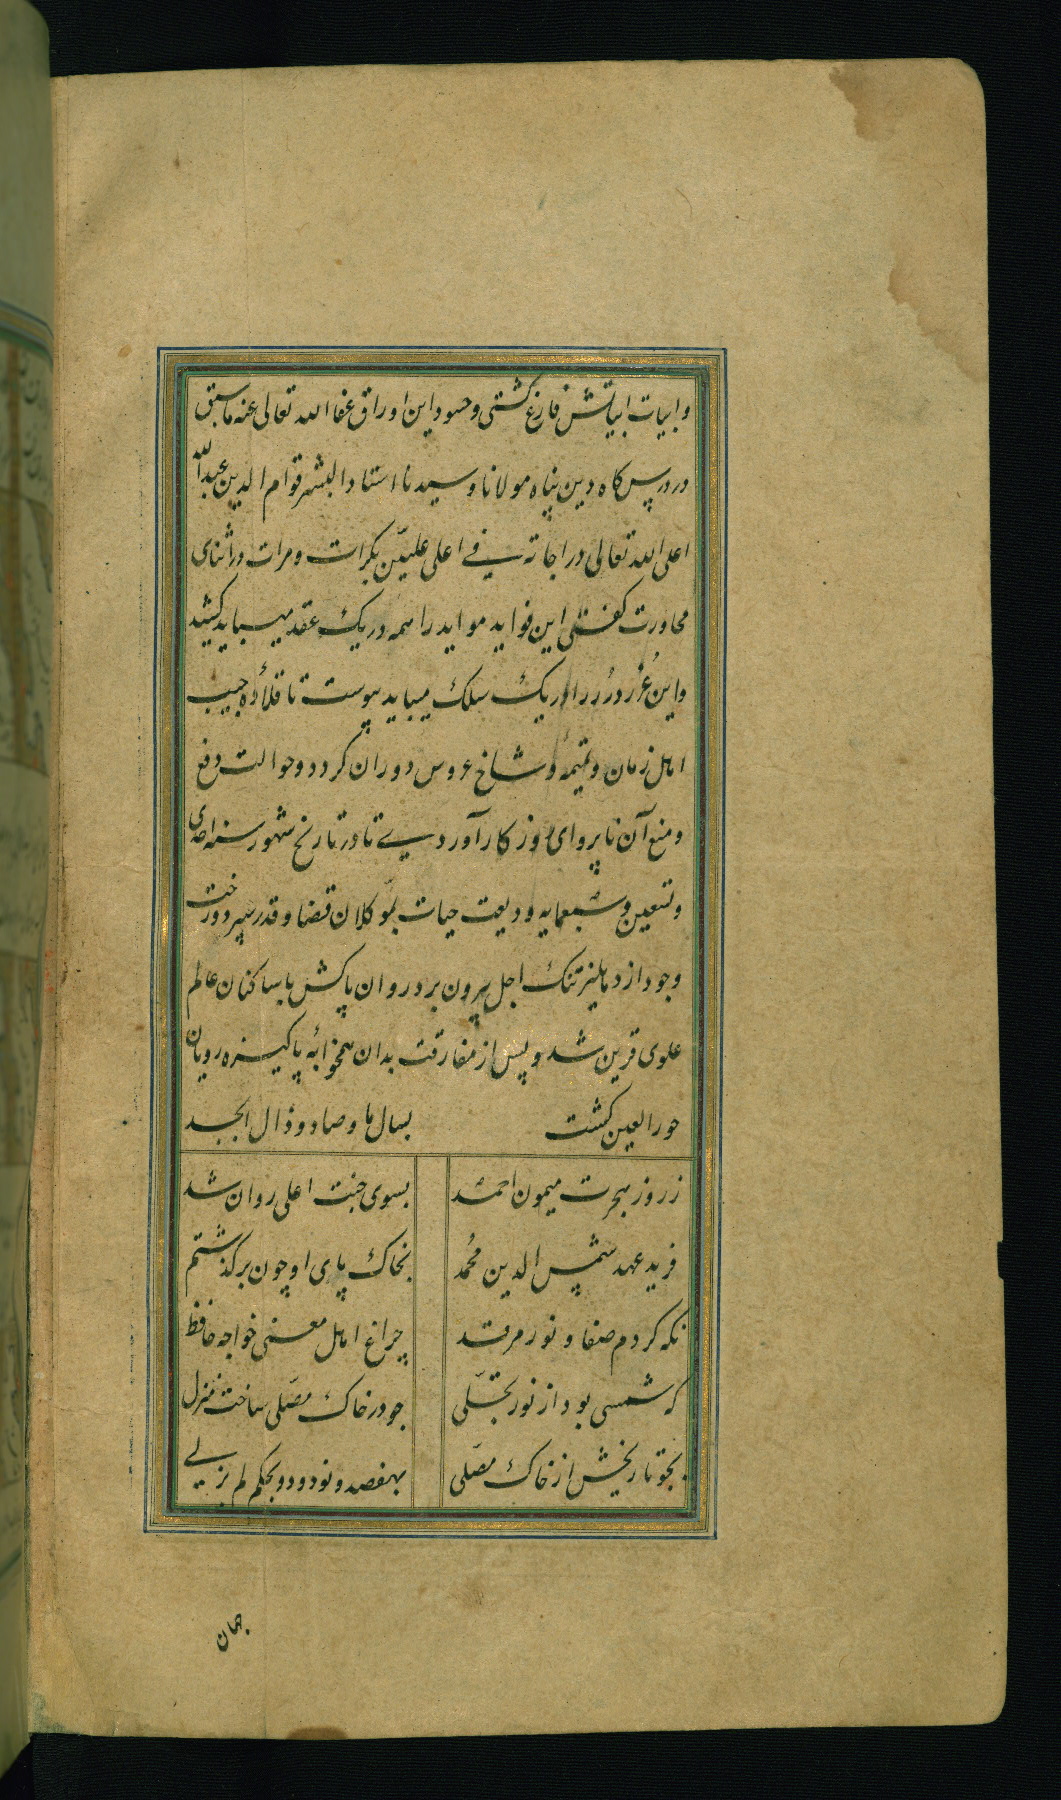 و ابیات ابیاتش فارغ گشتی و مسود این اوراق عفا الله تعالی عنه ماسبق
در درس کاه دین پناه مولانا و سیدنا استاد البشر قوام الدین عبدالله
اعلی الله تعالی دراجاته فی اعلی علیین بکرات و مرات در اثنای
محاورت گفتی این فواید مواید را همه در یک عقد میباید کشید
و این غُرر دُرر را در یک سلک میباید پیوست تا قلاده جیب
اهل زمان و تمیمه وشاخ عروس دوران کردد و حوالت دفع
و منع آن نا پروای روز کار آوردی تا در تاریخ شهور سنه احدی
و تسعین و سبعمایه ودیعت حیات بموکلان قضا و قدر سپرد و رخت
وجود از دهلیز تنک اجل بیرون برد و روان پاکش با ساکنان عالم
علوی قرین شد و پس از مفارقت بدان همخوابهٔ پاکیزه رویان
حور العین گشت
بسال با و صاد و ذال ابجد
ز روز هجرت میمون احمد
بسوی جنت اعلی روان شد
فرید عهد شمس الدین محُمد
بخاک پای او چون برکذشتم
نکه کردم صفا و نور مرقد
چراغ اهل معنی خواجه حافظ
که شمسی بود از نور تجلّی
چو در خاک مصّلی ساخت منزل
بجو تاریخش از خاک مصّلی
بهفصد و نود و دو بحکم لم یزلی
جهان